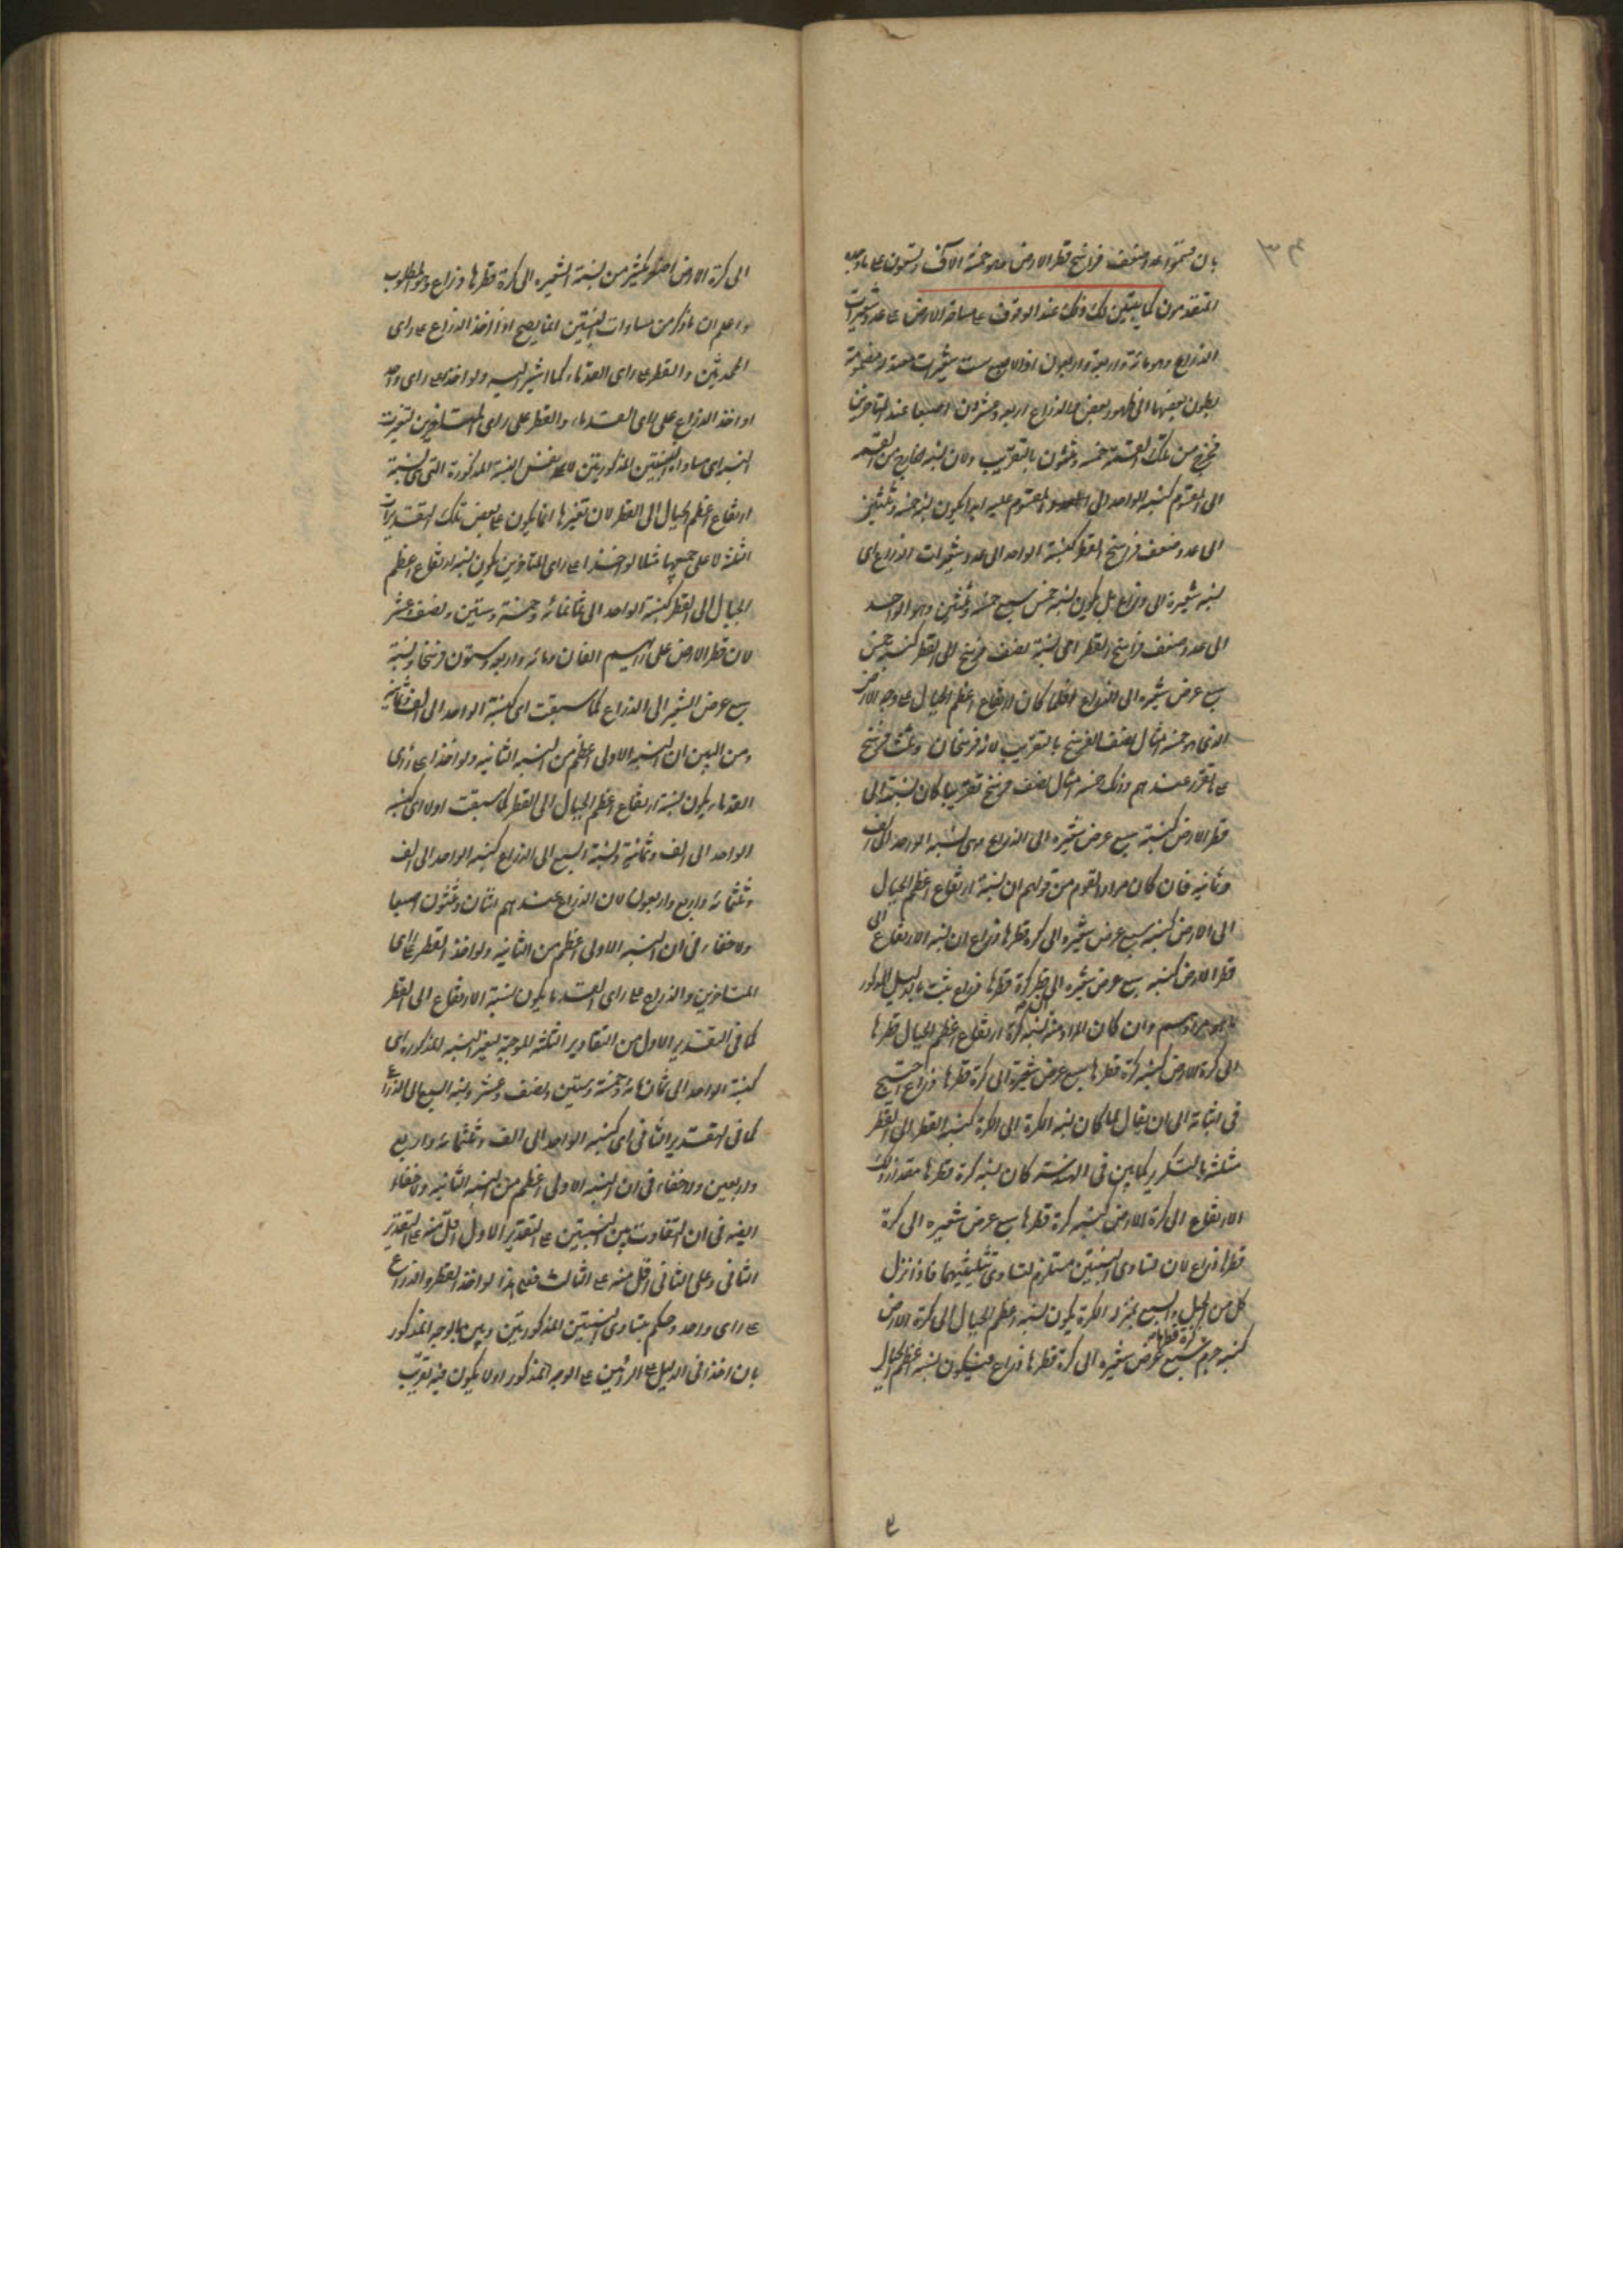 بان قسموا عدد ضعف فراسخ قطر الارض وهو خمسة الاف وتسعون على ما وجده
المتقدمون كما يتبين لك ذلك عند الوقوف على مساحة الارض على عدد شعيرات
الذراع وهو مائة واربعة واربعون اذ الاصبع ست شعيرات معتدلة مضمومة
بطون بعضها الى ظهور بعض والذراع اربعة وعشرون اصبعا عند المتاخرين
فخرج من تلك القسمة خمسة وثلثون بالتقريب ولان نسبة الخارج من القسمة
الى المقسوم كنسبة الواحد الى المقسوم عليه ابدا يكون نسبة خمسة وثلثين
الى عدد ضعف فراسخ القطر كنسبة الواحد الى عدد شعيرات الذراع اى
نسبة شعيرة الى ذراع بل يكون نسبة خمس سبع خمسة وثلثين وهو الواحد
الى عدد ضعف فراسخ القطر اعنى نسبة نصف فرسخ الى القطر كنسبة خمس
سبع عرض شعيرة الى الذراع فلما كان ارتفاع اعظم الجبال على وجه الارض
الذى هو خمسة امثال نصف الفرسخ بالتقريب لانه فرسخان وثلث فرسخ
على ما تقرر عندهم وذلك خمسة امثال نصف فرسخ تقريبا كان نسبته الى
قطر الارض كنسبة سبع عرض شعيرة الى الذراع وهى نسبة الواحد الى الف
وثمانية فان كان مراد القوم من قولهم ان نسبة ارتفاع اعظم الجبال
الى الارض كنسبة سبع عرض شعيرة الى كرة قطرها ذراع ان نسبة الارتفاع الى
قطر الارض كنسبة سبع عرض شعيرة الى قطر كرة قطرها ذراع ثبت بالدليل المذكور
وان كان المراد منه نسبة كرة ارتفاع اعظم الجبال قطرها
الى كرة الارض كنسبة كرة قطرها سبع عرض شعيرة الى كرة قطرها ذراع احتيج
فى اثباته الى ان يقال لما كان نسبة الكرة الى الكرة كنسبة القطر الى القطر
مثلثة بالتكرير كما بين فى الهندسة كان نسبة كرة قطرها مقدار ذلك
الارتفاع الى كرة الارض كنسبة كرة قطرها سبع عرض شعيرة الى كرة
قطرها ذراع لان تساوى النسبتين مستلزم لتساوى مثلثيهما فاذا نزل
كل من الجبل والسبع بمنزلة الكرة يكون نسبة اعظم الجبال الى كرة الارض
كنسبة جرم كرة قطرها سبع عرض شعيرة الى كرة قطرها ذراع فيكون نسبة اعظم الجبال
الى كرة الارض اصغر بكثير من نسبة الشعيرة الى كرة قطرها ذراع وهو المطلوب
واعلم ان ما ذكر من مساوات النسبتين انما يصح اذا اخذ الذراع على راى
المحدثين والقطر على راى القدماء كما اشير اليه ولو اخذا على راى واحد
او اخذ الذراع على راى القدماء والقطر على راى المتاخرين لتغيرت
النسبة اى مساواة النسبتين المذكورتين لا نفس النسبة المذكورة التى هى نسبة
ارتفاع اعظم الجبال الى القطر لان تغيرها انما يكون على بعض تلك التقديرات
الثلثة لا على جميعها مثلا لو اخذا على راى المتاخرين يكون نسبة ارتفاع اعظم
الجبال الى القطر كنسبة الواحد الى ثمانمائة وخمسة وستين ونصف وعشر
لان قطر الارض على رايهم الفان ومائة واربعة وستون فرسخا ونسبة
سبع عرض الشعير الى الذراع كما سبقت اى كنسبة الواحد الى الف وثمانية
ومن البين ان النسبة الاولى اعظم من النسبة الثانية ولو اخذا على راى
القدماء يكون نسبة ارتفاع اعظم الجبال الى القطر كما سبقت اولا اى كنسبة
الواحد الى الف وثمانية ونسبة السبع الى الذراع كنسبة الواحد الى الف
وثلثمائة واربع واربعون لان الذراع عندهم اثنان وثلثون اصبعا
ولا خفاء فى ان النسبة الاولى اعظم من الثانية ولو اخذ القطر على راى
المتاخرين والذراع على راى القدماء يكون نسبة الارتفاع الى القطر
كما فى التقدير الاول من التقادير الثلثة الموجبة لتغير النسبة المذكورة اى
كنسبة الواحد الى ثمان مائة وخمسة وستين ونصف وعشر ونسبة السبع الى الذراع
كما فى التقدير الثانى اى كنسبة الواحد الى الف وثلثمائة واربع
واربعين ولا خفاء فى ان النسبة الاولى اعظم من النسبة الثانية ولا خفاء
ايضا فى ان التفاوت بين النسبتين على التقدير الاول اقل منه على التقدير
الثانى وعلى الثانى اقل منه على الثالث فعلى هذا لو اخذ القطر والذراع
على راى واحد وحكم بتساوى النسبتين المذكورتين وبين بالوجه المذكور
بان اخذا فى الدليل على الرايين على الوجه المذكور اولا يكون فيه تقريب